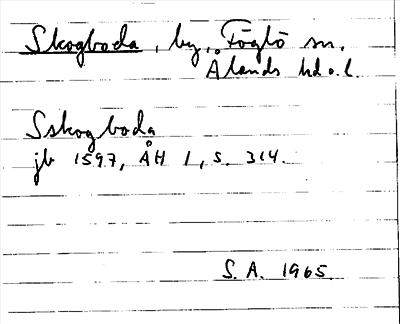 Skogboda, by, Föglö sn.
Ålands hd o. l.
Sskogboda
jb 1597, ÅH 1, s. 314.
S. A. 1965.